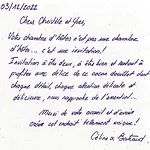 03/12/2022
Chers Christèle et Yves,
Votre chambre d'hôtes n'est pas une chambre
d'hôtes... c'est une invitation !
Invitation à être deux, à être bien et surtout à
profiter avec délice de ce cocon douillet dont
chaque détail, chaque attention délicate et
délicieuse, nous rapproche de l'essentiel...
Merci de votre accueil et d'avoir
créé cet endroit tellement unique !
Céline & Bertrand